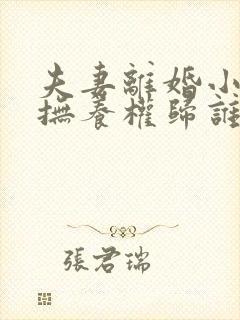 夫妻離婚小
撫養權歸誰
張君瑞